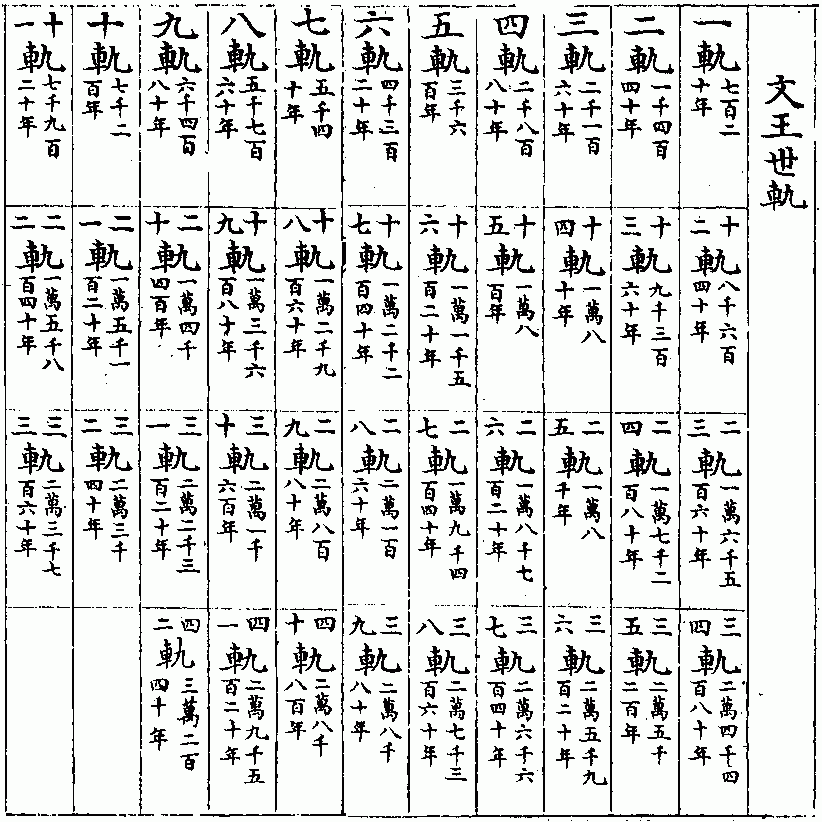 文王世軌
一軌七百二十年
二軌一千四百四十年
三軌二千一百六十年
四軌二千八百八十年
五軌三千六百年
六軌四千三百二十年
七軌五千四十年
八軌五千七百六十年
九軌六千四百八十年
十軌七千二百年
十一軌七千九百二十年
十二軌八千六百四十年
十三軌九千三百六十年
十四軌一萬八十年
十五軌一萬八百年
十六軌一萬一千五百二十年
十七軌一萬二千二百四十年
十八軌一萬二千九百六十年
十九軌一萬三千六百八十年
二十軌一萬四千四百年
二一軌一萬五千一百二十年
二二軌一萬五千八百四十年
二三軌一萬六千五百六十年
二四軌一萬七千二百八十年
二五軌一萬八千年
二六軌一萬八千七百二十年
二七軌一萬九千四百四十年
二八軌二萬一百六十年
二九軌二萬八百八十年
三十軌二萬一千六百年
三一軌二萬二千三百二十年
三二軌二萬三千四十年
三三軌二萬三千七百六十年
三四軌二萬四千四百八十年
三五軌二萬五千二百年
三六軌二萬五千九百二十年
三七軌二萬六千六百四十年
三八軌二萬七千三百六十年
三九軌二萬八千八十年
四十軌二萬八千八百年
四一軌二萬九千五百二十年
四二軌三萬二百四十年